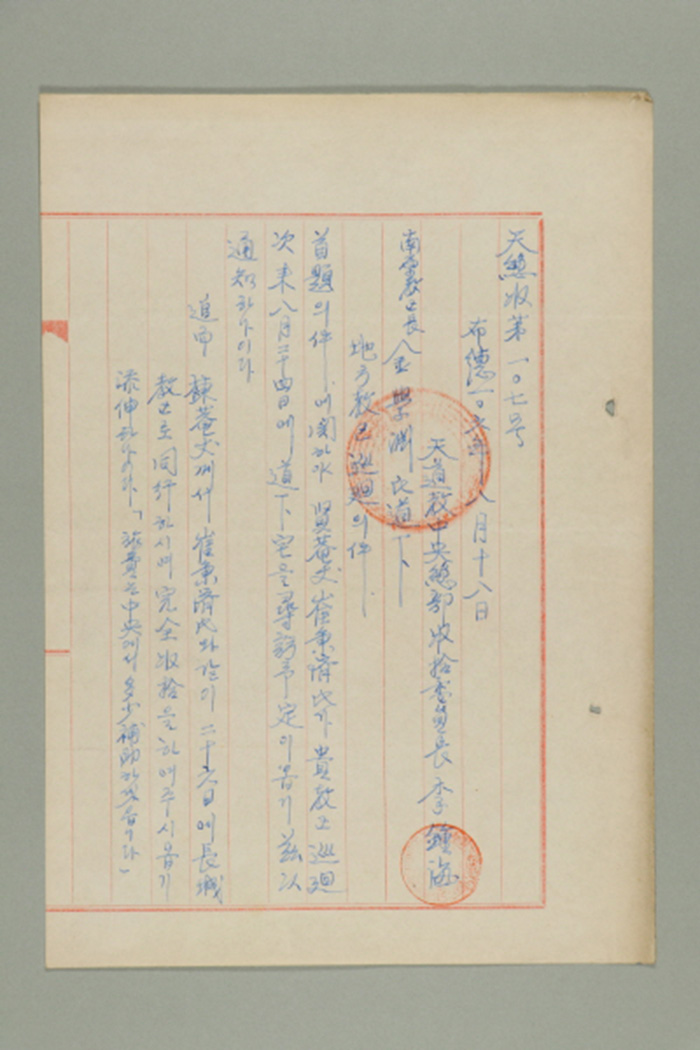 天總收第一〇七号
布德一〇六年八月十八日
天道教中央總部收拾委員長 李鍾海
南 教區長 金學淵氏道下
地方教區巡廻의件
首題의件에關하야 賢菴丈崔秉濟氏가 貴教區巡廻
次来八月二十四日에 道下宅을尋訪予定이옵기玆以
通知하나이다
追而 菴丈께서 崔秉濟氏와같이 二十六日에長城
教区로同行하시며 完全收拾을하여주시옵기
添伸하나이다「旅費는中央에서多少補助하겟읍니다」